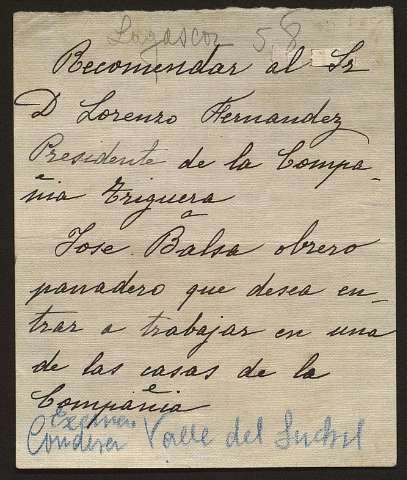 Lagasca 58
Recomendar al Sr
D Lorenzo Fernandez
Presidente de la Compa-
ñia Triguera
a
Jose Balsa obrero
panadero que desea en-
trar a trabajar en una
de las casas de la
Compañia
Condesa Valle del Suchil